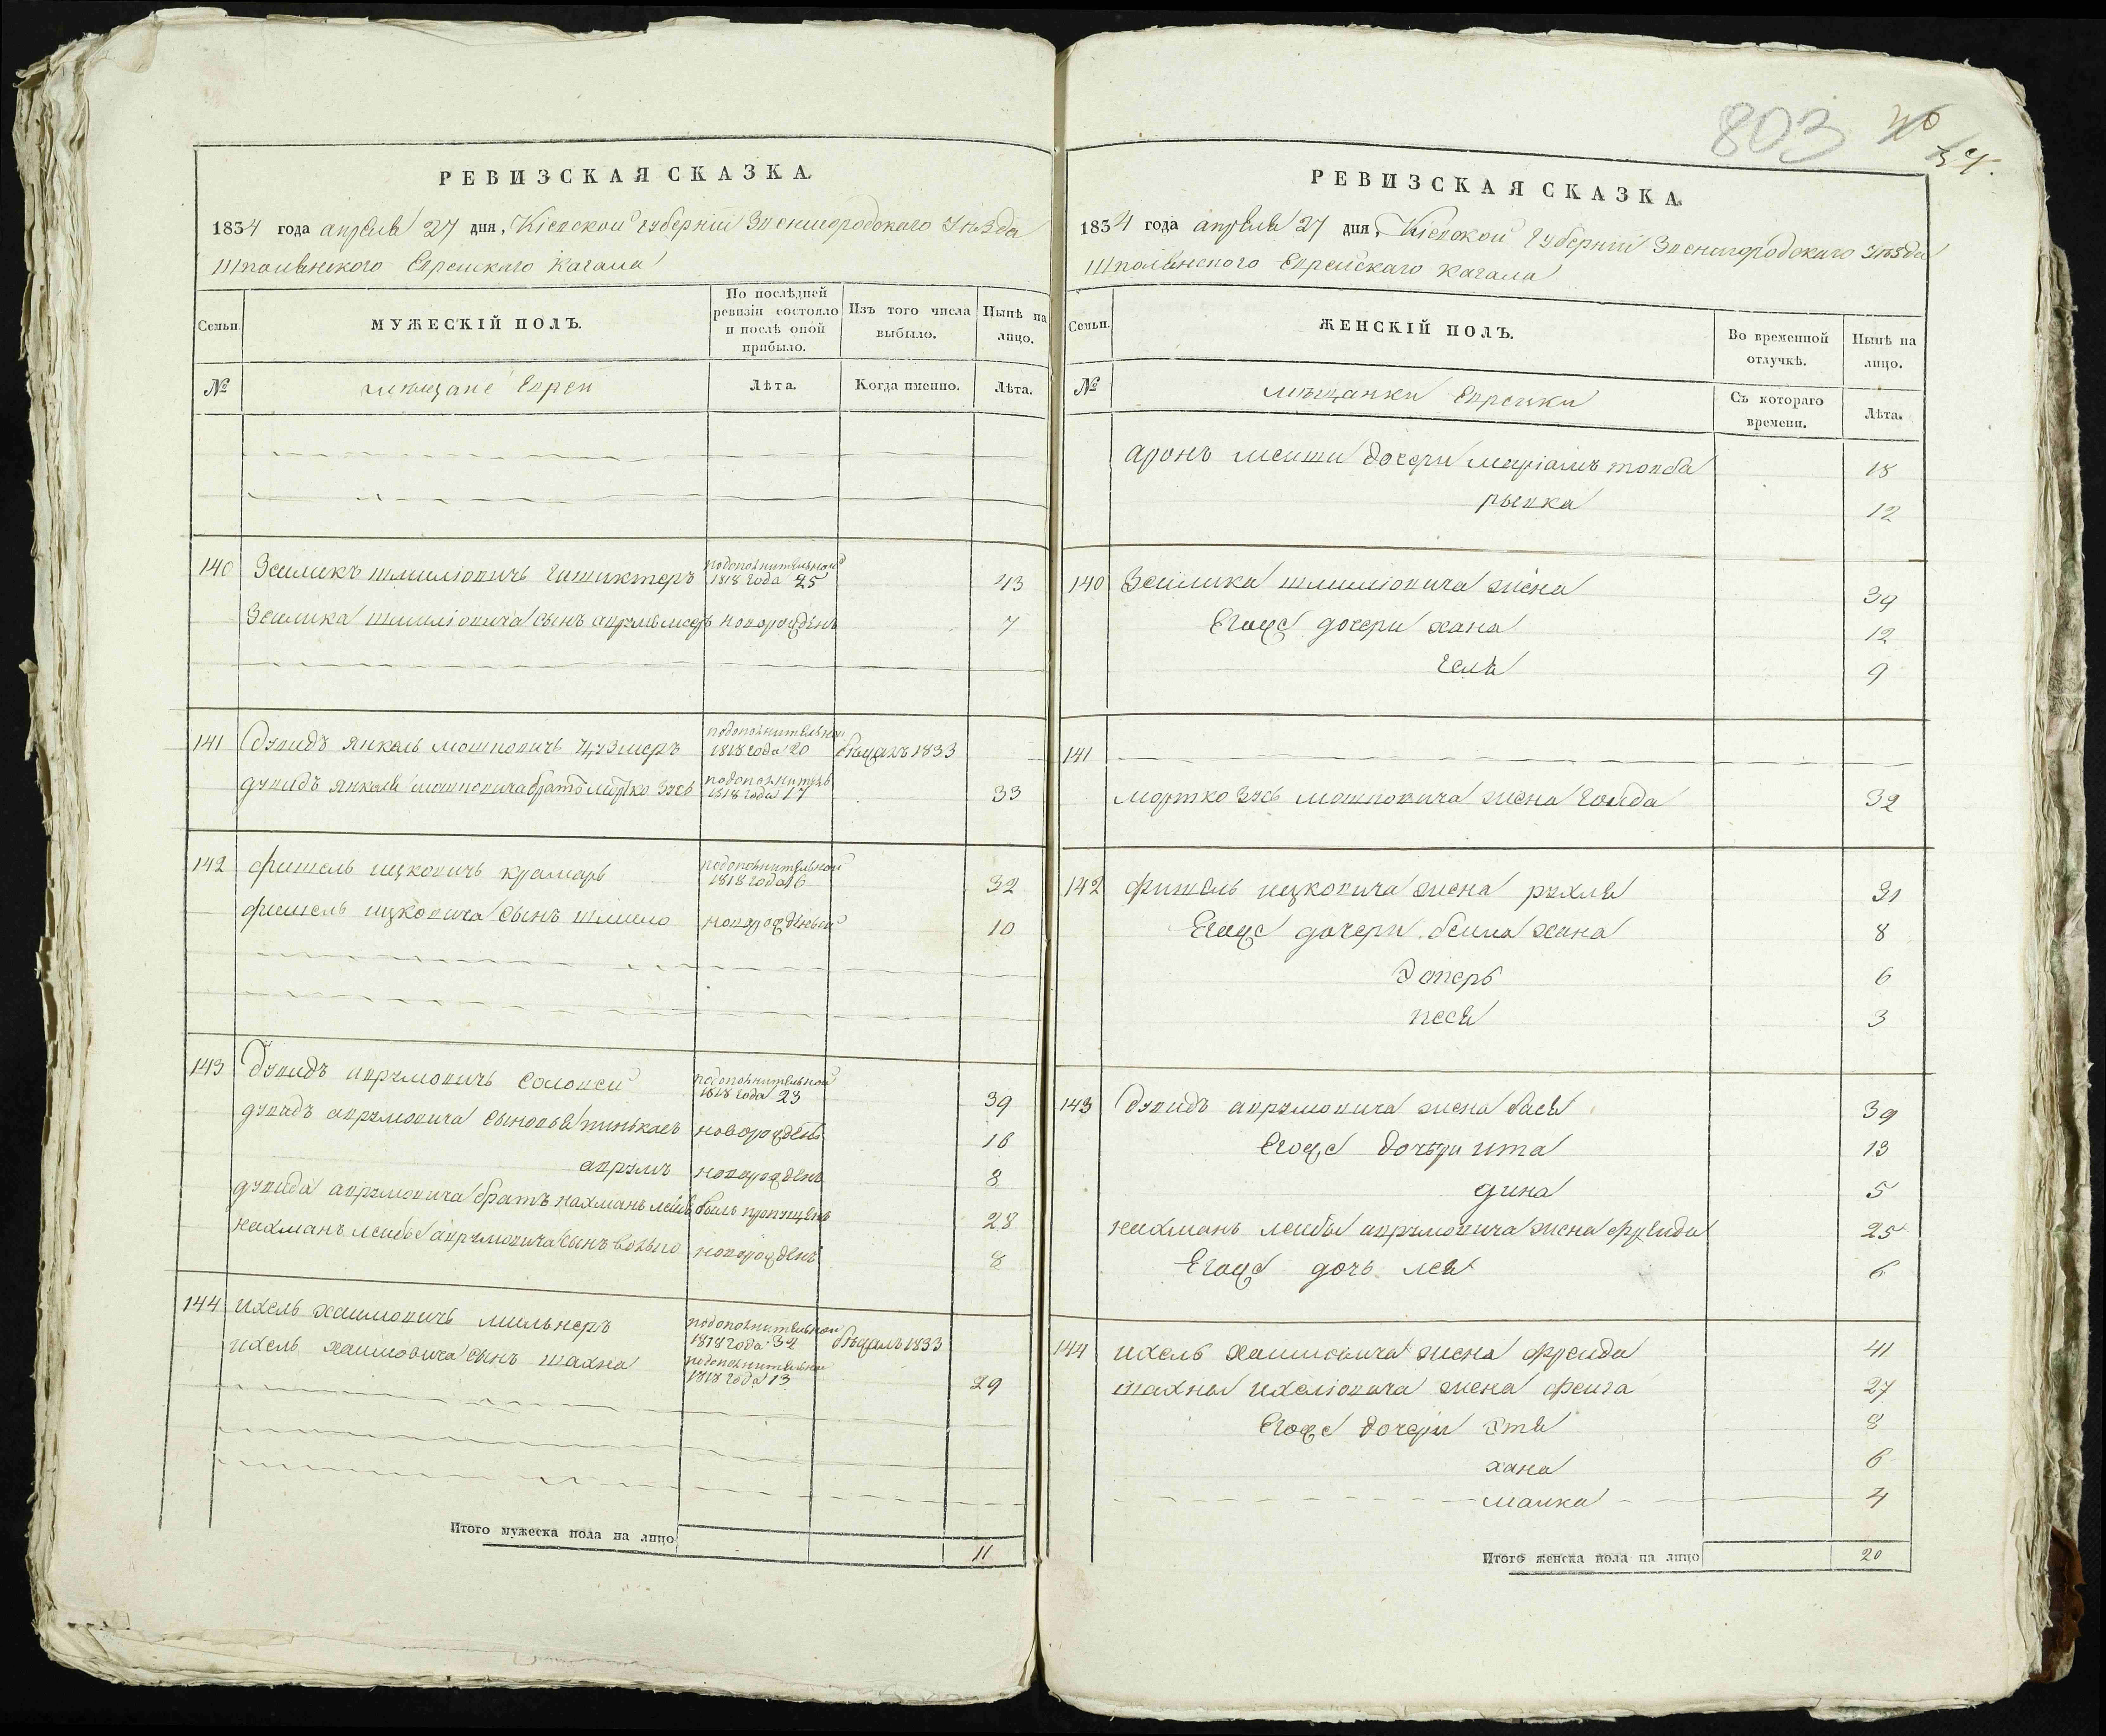 803
РЕВИЗСКАЯ СКАЗКА
1834 года апреля 27 дня, Кіевской губерніи Звенигородскаго Уѣзда
Шполянского Еврейскаго Кагала
Семьи.
МУЖЕСКІЙ ПОЛЪ.
По послѣдней ревизіи состояло и послѣ оной прибыло.
Изъ того числа выбыло.
Нынѣ на лицо.
№
мещане Евреи
Лѣта.
Когда именно.
Лѣта.
140 Зейликъ шмиліовичь подополнительной 1818 года 25 43
Зейлика шмиліовича сынъ новорожденъ 7
141 Дувидъ янкель мошковичь подополнительной 1818 года 20 1833
дувидъ янкеля мошковича братъ мортко зусь подополнитель 1818 года 17 33
142 фишель ицковичь крамарь подополнительной 1818 года 16 32
фишель ицковича сынъ шмило новорожденой 10
143 Дувидъ аврумовичь соловей подополнительной 1818 года 23 39
дувидъ аврумовича сыновья пинькасъ новорожденъ 16
аврумъ новорожденъ 8
дувида аврумовича братъ нахманъ лейба былъ пропущенъ 28
нахманъ лейбы аврумовича сынъ волько новорожденъ 8
144 ихель хаимовичь мильнеръ подополнительной 1818 года 32 1833
ихель хаимовича сынъ шахна подополнительной 1818 года 13 29
Итого мужеска пола на лицо 11
РЕВИЗСКАЯ СКАЗКА
1834 года апреля 27 дня, Кіевской губерніи Звенигородскаго Уѣзда
Шполянского Еврейскаго Кагала
Семьи.
ЖЕНСКІЙ ПОЛЪ.
Во временной отлучкѣ.
Нынѣ на лицо.
№
мѣщанки Еврейки
Съ котораго времени.
Лѣта.
аронъ дочери маріамъ товба 18
рывка 12
140 Зейлика шмиліовича жена 39
Егоже дочери хана 12
геля 9
141
мортко зусь мошковича жена голда 32
142 фишель ицковича жена рухля 31
Егоже дочери бейла хана 8
двойра 6
песя 3
143 Дувидъ аврумовича жена бася 39
Егоже дочери ита 13
дина 5
нахманъ лейбы аврумовича жена фрейда 25
Егоже дочь лея 6
144 ихель хаимовича жена фрейда 41
шахны ихеліовича жена фейга 27
Егоже дочери этя 8
хана 6
малка 4
Итого женска пола на лицо 20